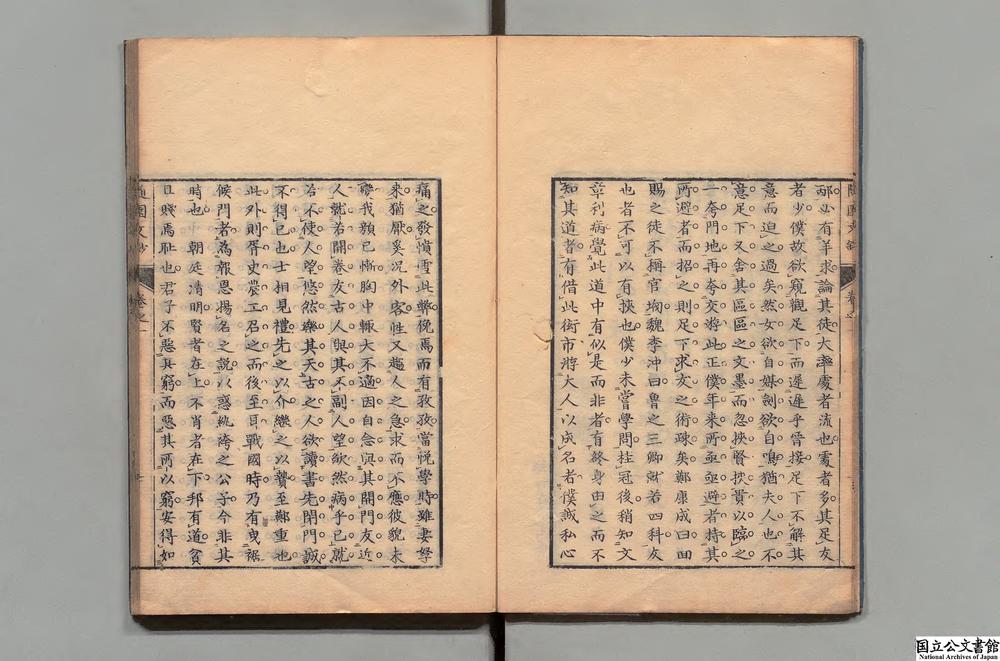 隨園文鈔
卷之一
邴必有羊求論其徒大率處者流也處者多其足友
者少僕故欲窺觀足下而遲遲乎晉接足下不解其
意而迫之過矣然女欲自媒劍欲自鳴猶夫人也不
意足下又舍其區區之文墨而忽挾賢挾貴以臨之
一夸門地再夸交游此正僕年來所亟亟避者持其
所避者而招之則足下求友之術疎矣鄭康成曰回
賜之徒不稱官閥魏李沖曰魯之三卿孰若四科友
也者不可以有挾也僕少未嘗學問挂冠後稍知文
章利病覺此道中有似是而非者有終身由之而不
知其道者有借此街市將大人以成名者僕誠私心
痛之發憤雪此弊俛焉而有孜孜當悅學時雖妻孥
來猶厭奚況外客性又趨人之急求而不應彼貌未
變我顏已慚胸中輒大不適因自念與其開門友近
人孰若閉卷友古人與其不副人望欿然病乎已孰
若不使人望悠然樂其天古之人欲讀書先閉門誠
不得已也士相見禮先之以介繼之以贄至鄭重也
此外則胥史農工召之而後至耳戰國時乃有曳裾
候門者爲報恩揚名之說以惑紈袴之公子今非其
時也 朝廷清明賢者在上不肖者在下邦有道貧
且賤焉恥也君子不惡其窮而惡其所以窮安得如
隨園文鈔
卷之一
国立公文書館
National Archives of Japan